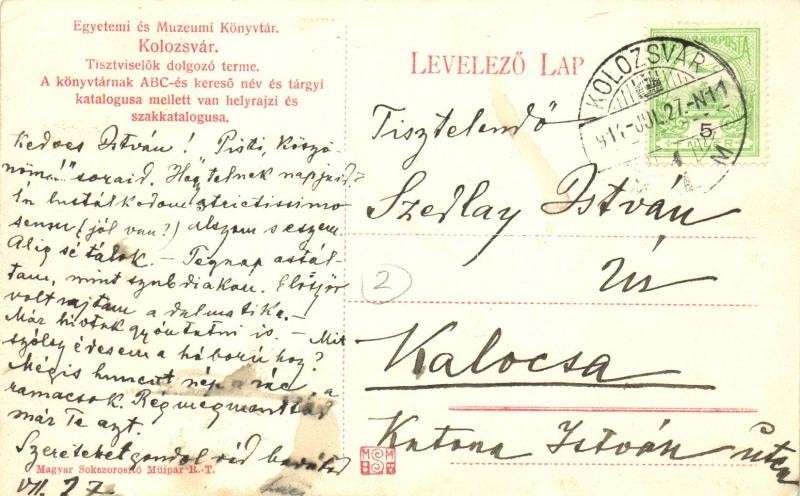 Egyetemi és Muzeumi Könyvtár.
Kolozsvár.
Tisztviselők dolgozó terme.
A könyvtárnak ABC-és kereső név és tárgyi
katalogusa mellett van helyrajzi és
szakkatalogusa.
LEVELEZŐ LAP
KOLOZSVÁR
914 JUL. 27. N 11
5
Kedves István! Pisti, köszö-
nöm soraid. Hogy telnek napjaid?
Én lustálkodom strictissimo
sensu (jól van?) Alszom s eszem.
Alig sétálok. – Tegnap asztál-
tam, mint szubdiakon. Először
volt rajtam a dalmatika. –
Már hívtak gyóntatni is. – Mit
szólsz édesem a háborúhoz?
Mégis huncut nép a rác, a
ramacsok. Rég megmondtad
már Te azt.
Szeretettel gondol rád barátod
VII. 27.
Tisztelendő
Szedlay István
Úr
2
Kalocsa
Katona István utca
Magyar Sokszorositó Műipar R.-T.
M M
S T